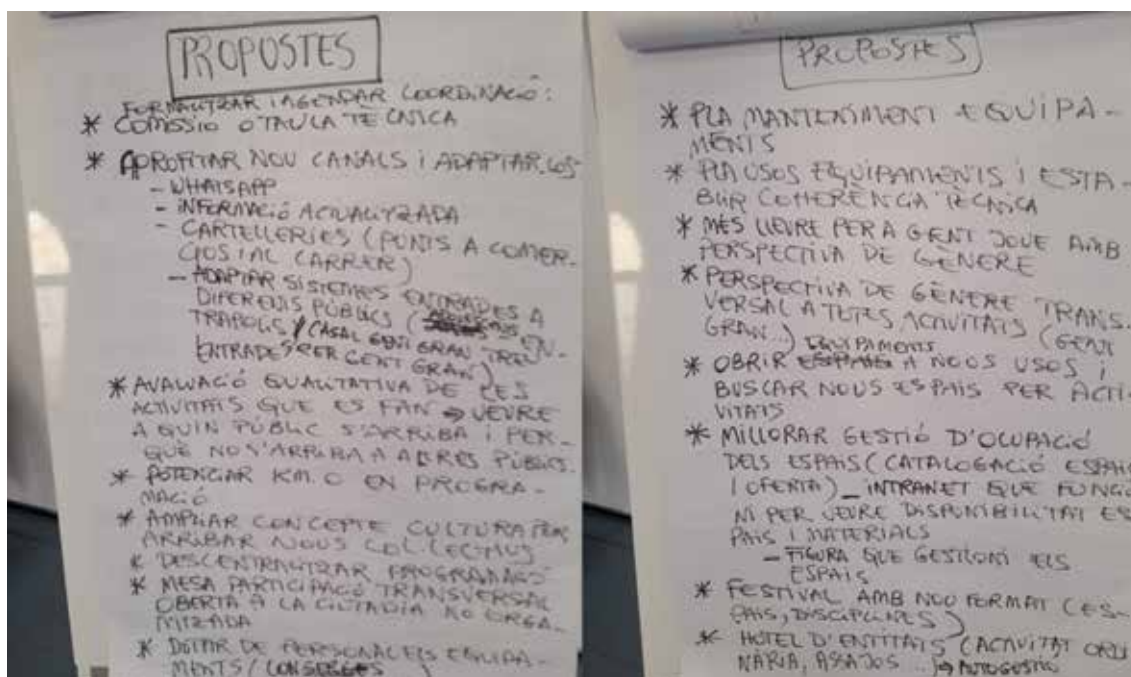 PROPOSTES
FORMALITZAR I AGENDAR COORDINACIÓ:
* COMISSIO O TAULA TECNICA
* APROFITAR NOU CANALS i ADAPTAR-LOS
- WHATSAPP
- INFORMACIÓ ACTUALITZADA
- CARTELLERIES (PUNTS A COMER-
ÇOS I AL CARRER)
- ADAPTAR SISTEMES ENTRADES A
DIFERENTS PÚBLICS (
TRAPOLIS / CASAL GENT GRAN TREU
ENTRADES PER GENT GRAN)
* AVALUACIÓ QUALITATIVA DE LES
ACTIVITATS QUE ES FAN → VEURE
A QUIN PÚBLIC S'ARRIBA i PER-
QUÈ NO S'ARRIBA A ALTRES PÚBLICS.
* POTENCIAR KM. O EN PROGRA-
MACIÓ
* AMPLIAR CONCEPTE CULTURA PER
ARRIBAR NOUS COL·LECTIUS
* DESCENTRALITZAR PROGRAMACIÓ
* MESA PARTICIPACIÓ TRANSVERSAL
OBERTA A LA CIUTADIA NO ORGA-
NITZADA
* DOTAR DE PERSONAL ELS EQUIPA-
MENTS (CONSERGES
PROPOSTES
* PLA MANTENIMENT EQUIPA-
MENTS
* PLA USOS EQUIPAMENTS i ESTA-
BLIR COHERÈNCIA TÈCNICA
* MÉS LLEURE PER A GENT JOVE AMB
PERSPECTIVA DE GÈNERE
* PERSPECTIVA DE GÈNERE TRANS-
VERSAL A TOTES ACTIVITATS (GENT
GRAN...)
EQUIPAMENTS
* OBRIR ESPAIS A NOUS USOS i
BUSCAR NOUS ESPAIS PER ACTI-
VITATS
* MILLORAR GESTIÓ D'OCUPACIÓ
DELS ESPAIS (CATALOGACIÓ ESPAI
I OFERTA) _ INTRANET QUE FUNCIO
NI PER VEURE DISPONIBILITAT ES
PAIS I MATERIALS
- FIGURA QUE GESTIONI ELS
ESPAIS
* FESTIVAL AMB NOU FORMAT (ES-
PAIS, DISCIPLINES)
* HOTEL D'ENTITATS (ACTIVITAT ORDI
NÀRIA, ASSAJOS ...) → AUTOGESTIÓ